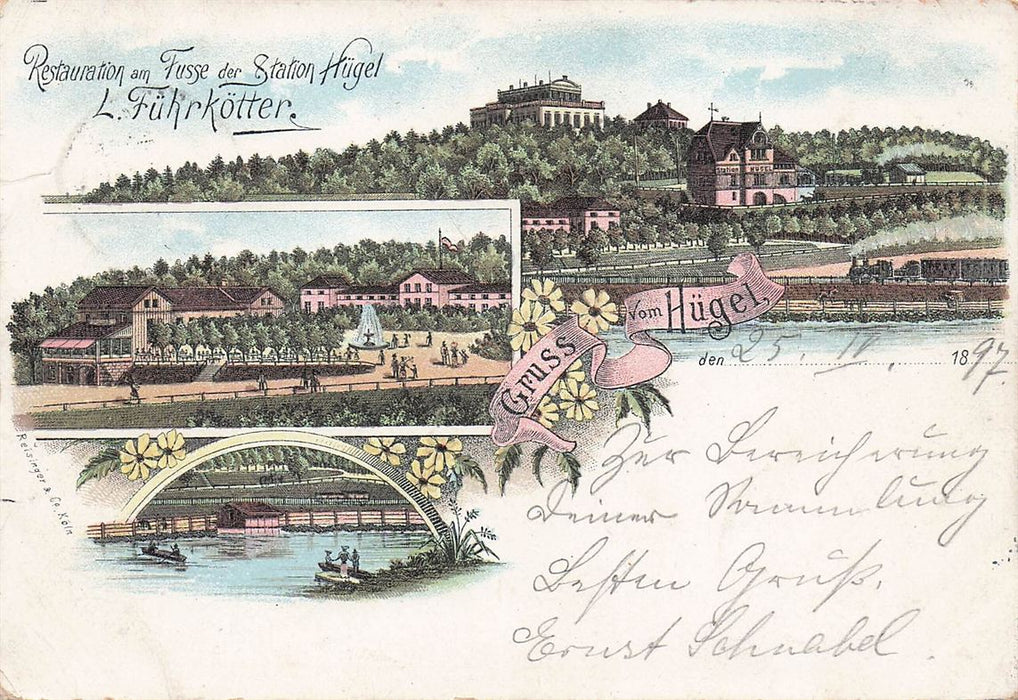 Restauration am Fusse der Station Hügel
L. Führkötter.
Gruss
Vom Hügel,
den 25. IV. 1897.
Reisinger & Co. Köln
Zur Bereicherung
deiner Sammlung
Besten Gruß.
Ernst Schnabel.